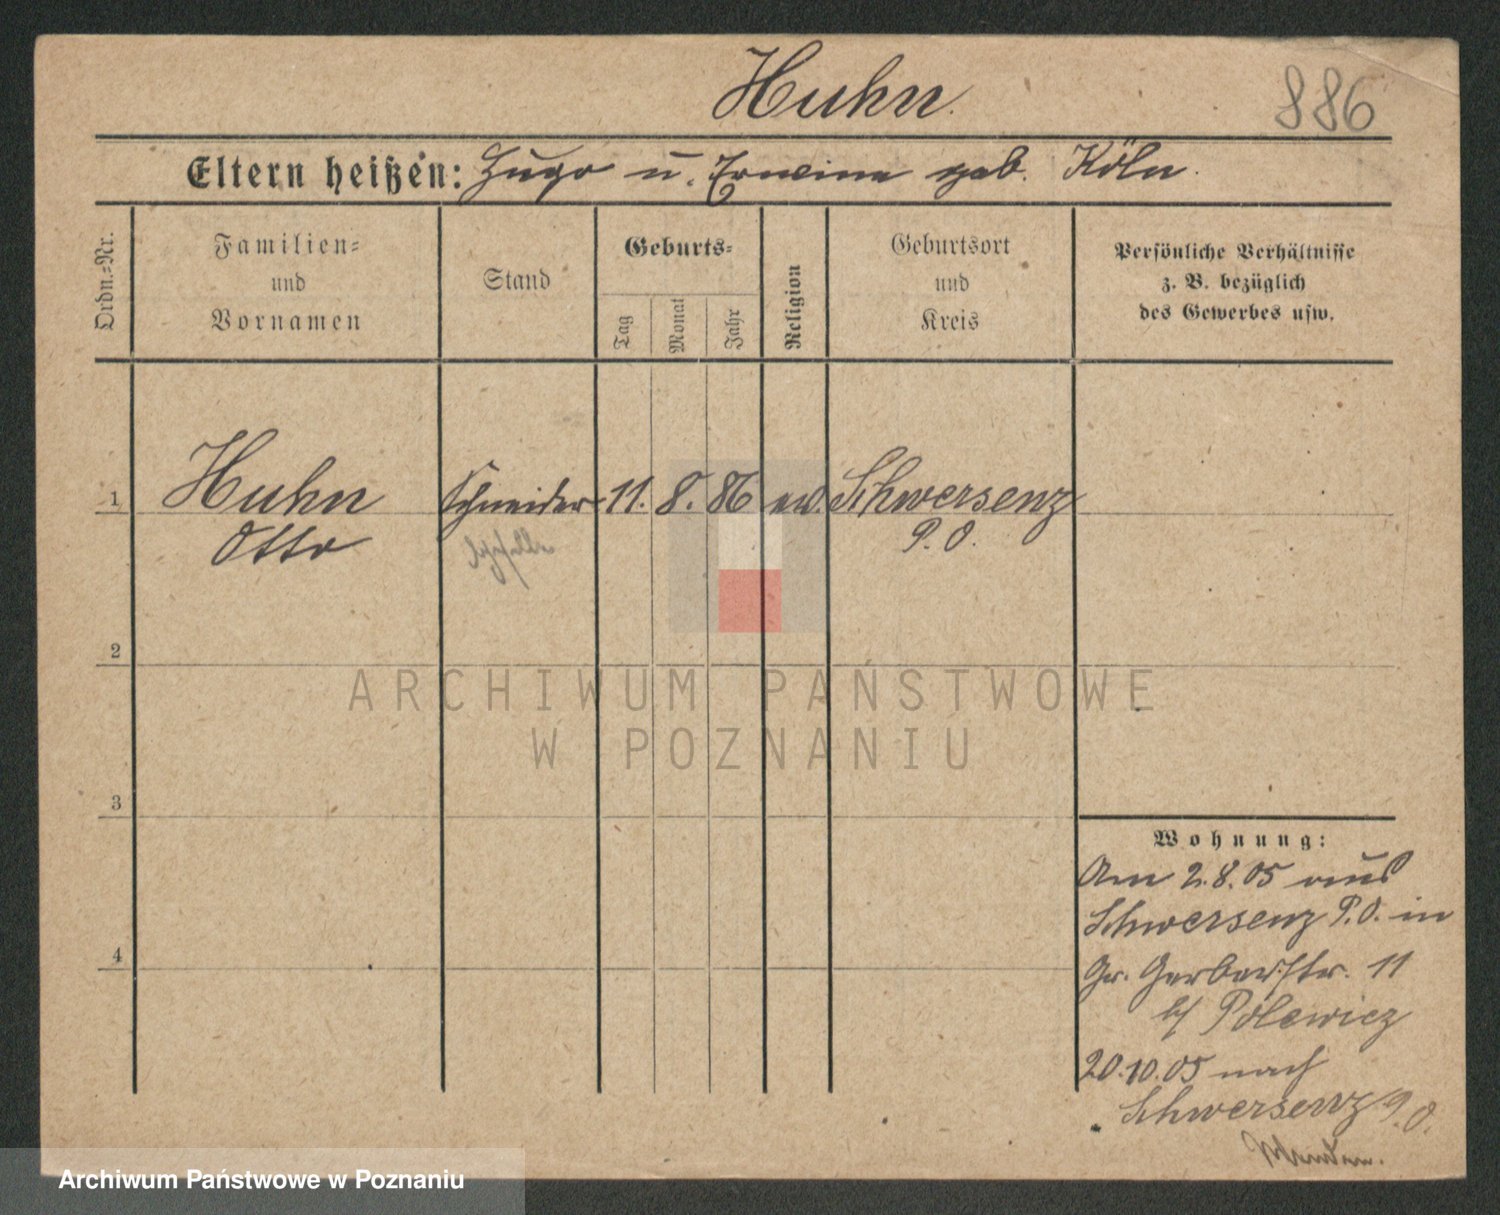 Huhn.
886
Eltern heißen: Hugo u. Erwine geb. Köln.
Ordn.=Nr.
Familien=
und
Vornamen
Stand
Geburts=
Tag
Monat
Jahr
Religion
Geburtsort
und
Kreis
Persönliche Verhältnisse
z. B. bezüglich
des Gewerbes usw.
1 Huhn Schneider 11. 8. 86 ev. Schwersenz
Otto P. O.
2
3
4
Wohnung:
Am 2.8.05 aus
Schwersenz P.O. in
Gr. Gerberstr. 11
b/ Polewicz
20.10.05 nach
Schwersenz P.O.
ARCHIWUM PAŃSTWOWE
W POZNANIU
Archiwum Państwowe w Poznaniu